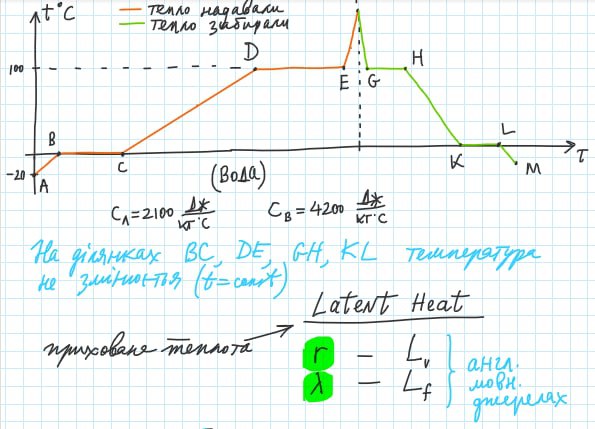 t°C
— тепло надавали
— тепло забирали
100
D
E
G
H
B
C
K
L
M
τ
-20
A
(Вода)
Cл=2100 Дж/кг°С
Cв=4200 Дж/кг°С
На ділянках BC, DE, GH, KL температура
не змінюється (t=const)
Latent Heat
приховане теплота
r — Lv
λ — Lf
англ.
мовн.
джерелах